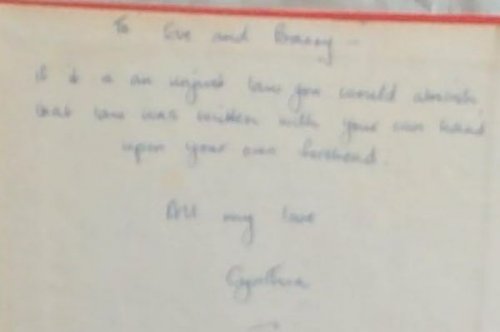 To Eve and
it is an unjust law you would abolish
that law was written with your own hand
upon your own forehead.
All my love
Cynthia